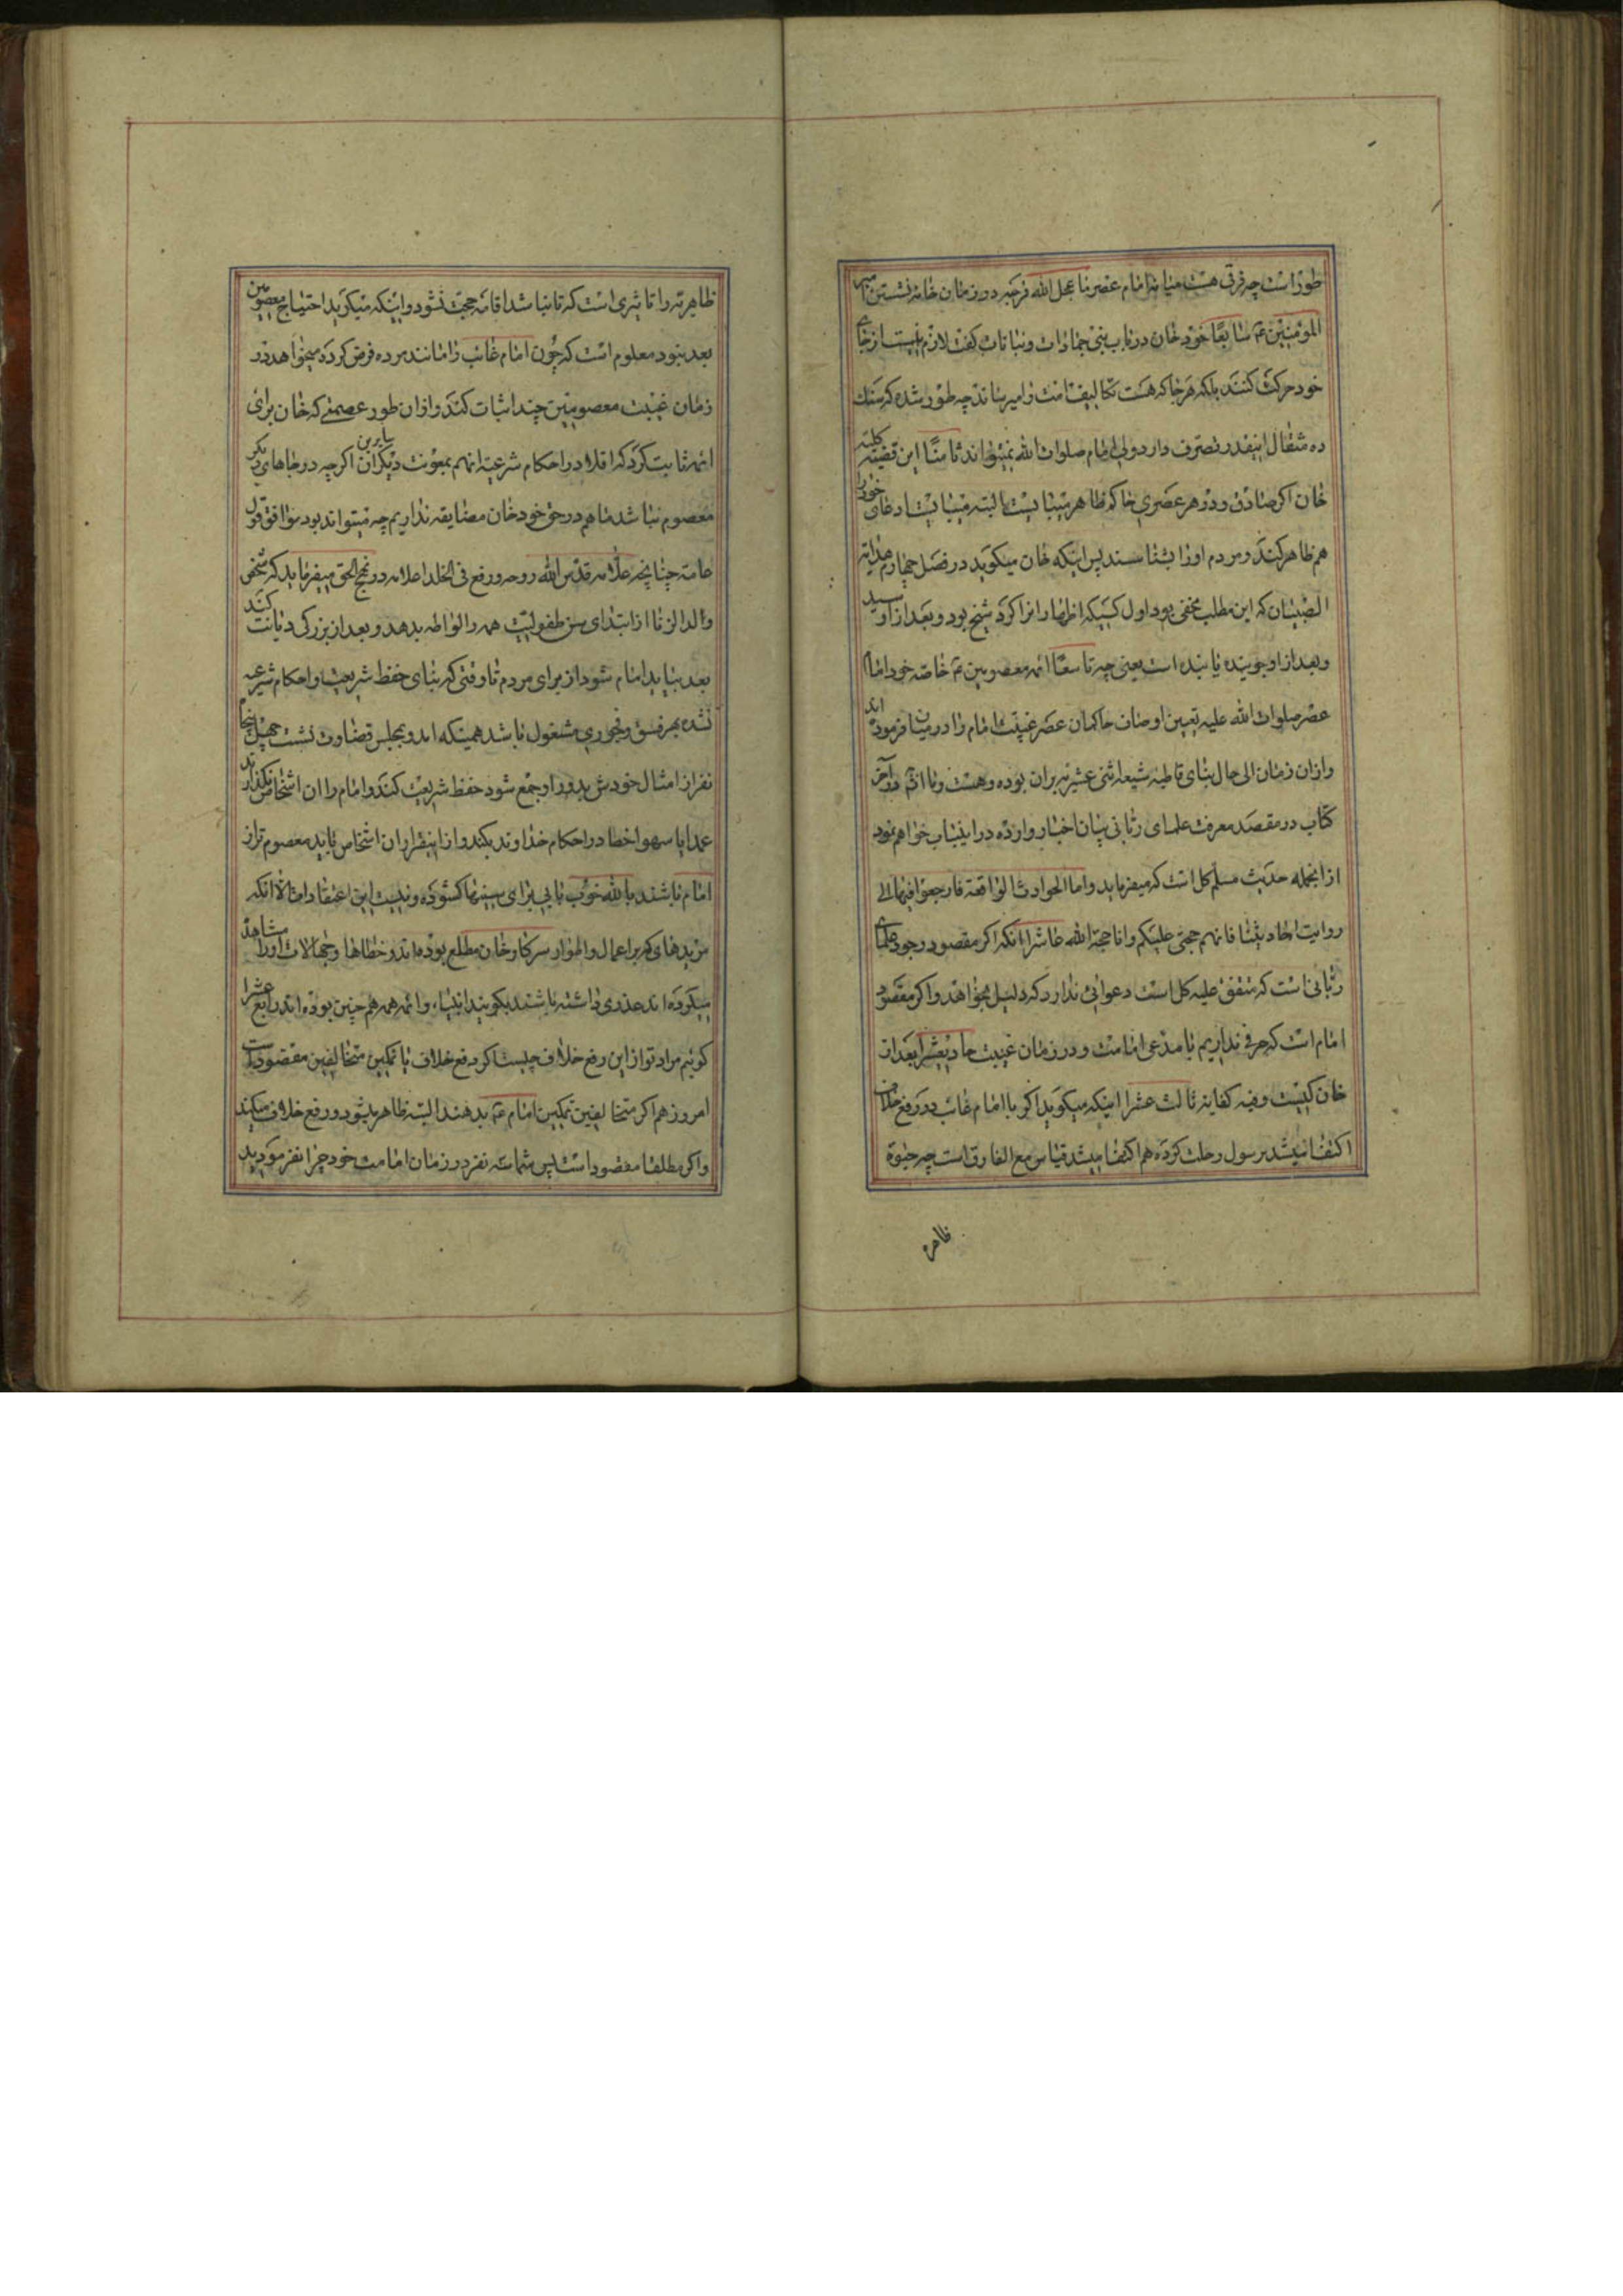 طور است چه فرق هست میانه امام عصر ما عجل الله فرجه در زمان خانه نشستن امیر
المؤمنین ع سابعًا خود خان در باب نبی جمادات و نباتات گفت لازم نیست از جای
خود حرکت کنند بلکه هر جا که هست تکالیف امت را میرساند چه طور شده که سنك
ده مثقال اینقدر تصرف دارد ولی امام صلوات الله نمیتواند ثامنًا این قضیه کلیه
خان اگر صادق و در هر عصری حاکم ظاهر میبایست البته میبایست ادعای خود را
هم ظاهر کند و مردم او را بشناسند پس اینکه خان میکوید در فصل چهارم هدایة
الصبیان که این مطلب مخفی بود اول کسیکه اظهار انرا کرد شیخ بود و بعد از او سید
و بعد از او جوینده یابنده است یعنی چه تاسعًا ائمه معصومین ع خاصه خود امام
عصر صلوات الله علیه تعیین اوصاف حاکمان عصر غیبت امام را در میان فرموده اند
و از ان زمان الی حال بنای قاطبه شیعه اثنی عشریه بران بوده و هست و ما انشم در آخر
کتاب در مقصد معرفت علمای ربانی بیان اخبار وارده در اینباب خواهم نمود
از انجمله حدیث مسلم کل است که میفرماید واما الحوادث الواقعة فارجعوا فیها الی
روایت احادیثنا فانهم حجتی علیکم وانا حجة الله عاشرا انکه اگر مقصود وجود علمای
ربانی است که متفق علیه کل است دعوائی ندارد که دلیل بخواهد و اگر مقصود
امام است که حرفی نداریم با مدعی امامت و در زمان غیبت حادیعشر بعد از
خان کیست وفیه کفایة ثالث عشرا اینکه میکوید اگر با امام غائب در رفع خلاف
اکتفا میشد برسول رحلت کرده هم اکتفا میشد قیاس مع الفارق است چه حیوة
ظاهریه
ظاهریه را تاثیری است که تا نباشد اقامه حجت نشود و اینکه میکوید احتیاج معصومین
بعد نبود معلوم است که چون امام غائب را مانند مرده فرض کرده میخواهد در
زمان غیبت معصومین چند اثبات کند و از ان طور عصمتی که خان برای
ائمه ثابت کرد که اقلا در احکام شرعیه انهم بمعونت دیگران سایرین اگر چه در جاهای دیگر
معصوم نباشد ما هم در حق خود خان مضایقه نداریم چه میتواند بود موافق قول
عامه چنانچه علامه قدس الله روحه ورفع فی الخلد اعلامه در نهج الحق میفرماید که شخصی
ولد الزنا از ابتدای سن طفولیت همه را لواطه بدهد و بعد از بزرکی دیانت کند
بعد بیاید امام شود از برای مردم تا وقتی که بنای حفظ شریعت و احکام شرعیه
نشده بهر فسق و فجوری مشغول باشد همینکه امد و بمجلس قضاوت نشست چهل پنجاه
نفر از امثال خودش بدور او جمع شود حفظ شریعت کند و امام را ان اشخاص نگذارند
عمدا یا سهوا خطا در احکام خداوند بکند و از اینقرار ان اشخاص باید معصوم تر از
امام باشند بالله خوب بابی برای سفیها کشوده و نیست این اعتقادات الا انکه
مریدهای که بر اعمال و اطوار سرکار خان مطلع بوده اند و خطاها و جهالات او را مشاهده
میکرده اند عذری داشته باشند بکویند انبیاء و ائمه همه هم چنین بوده اند رابع عشرا
کوئیم مراد تو از این رفع خلاف چیست اگر رفع خلاف با تمکین متخالفین مقصود است
امروز هم اگر متخالفین تمکین امام ع بدهند البته ظاهر میشود و رفع خلاف میکند
و اگر مطلقا مقصود است پس شما سه نفر در زمان امامت خود چرا نفرمودید